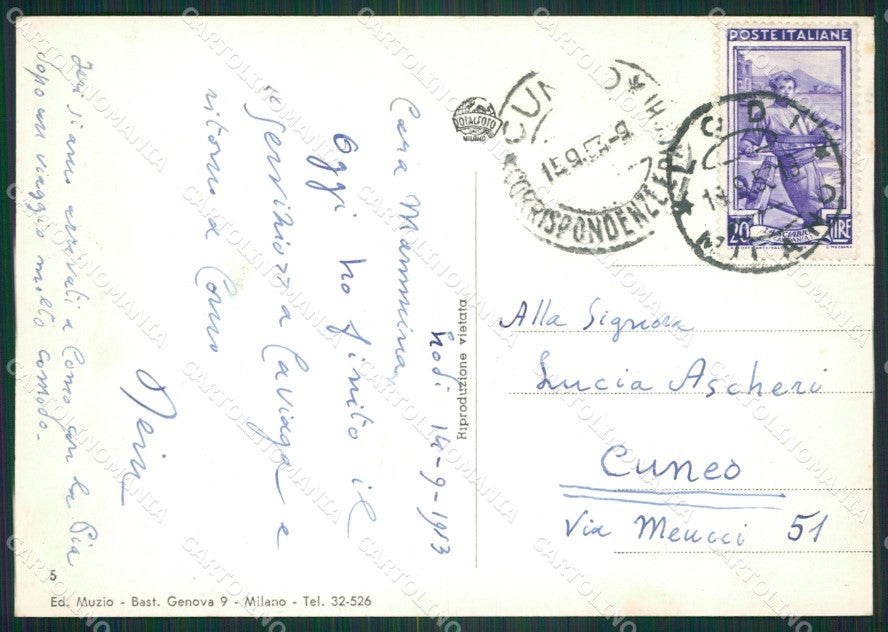 Lodi 14-9-1953
Cara Mammina,
Oggi ho finito il
"Servizio" a Cavaga e
ritorno a Como
Ieri siamo arrivati a Como con la Pia
dopo un viaggio molto comodo.
5
Ed. Muzio - Bast. Genova 9 - Milano - Tel. 32-526
Riproduzione vietata
TOTALFOTO
MILANO
CUNEO
15.9.53-9
CORRISPONDENZE E
LODI
MILANO
POSTE ITALIANE
20 LIRE
Alla Signora
Lucia Ascheri
Cuneo
Via Meucci 51
CARTOLINOMANIA